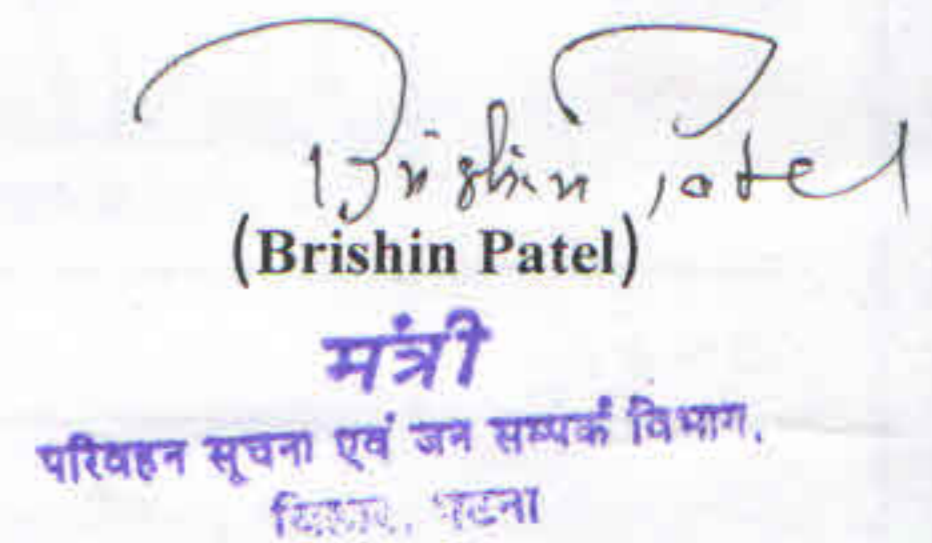 Brishin Patel
(Brishin Patel)
मंत्री
परिवहन सूचना एवं जन सम्पर्क विभाग,
बिहार, पटना